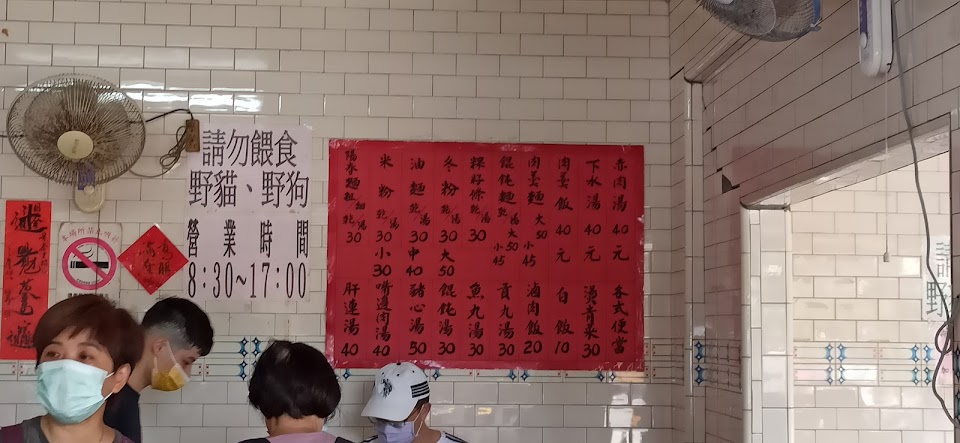 請勿餵食
野貓、野狗
營業時間
8:30~17:00
本場所禁止吸菸
赤肉湯 40元
下水湯 40元
肉羹飯 40元
肉羹麵 大50 小45
餛飩麵 乾/湯 大50 小45
粿仔條 乾/湯 30
冬粉 乾/湯 大50
油麵 乾/湯 中40
米粉 乾/湯 小30
陽春麵 粗/細 乾/湯 30
各式便當
燙青菜 30
白飯 10
滷肉飯 20
貢丸湯 30
魚丸湯 30
餛飩湯 30
豬心湯 50
嘴邊肉湯 40
肝連湯 40
請
野